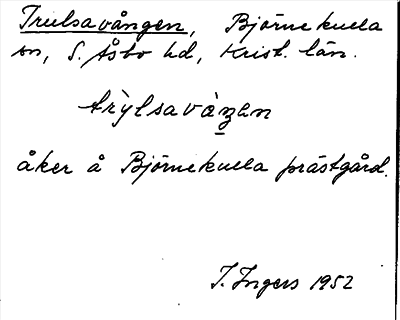 Trulsavången, Björnekulla
sn, S. Åsbo hd, Krist. län.
åker å Björnekulla prästgård.
I. Ingers 1952